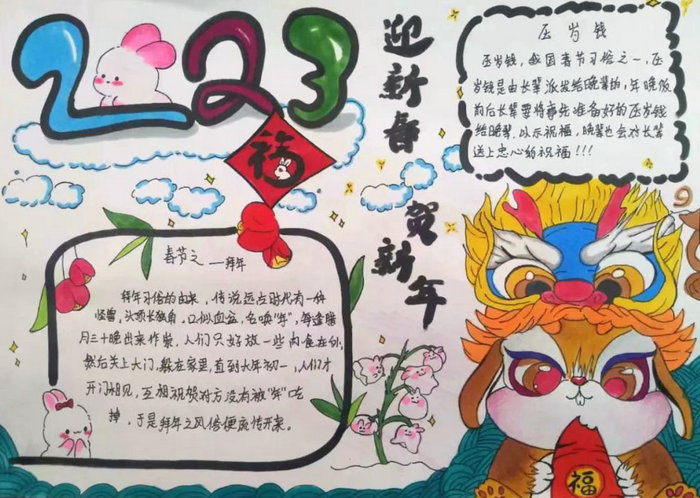 2023
福
迎新春
贺新年
压岁钱
压岁钱，我国春节习俗之一，压
岁钱是由长辈派发给晚辈的，年晚饭
前后长辈要将事先准备好的压岁钱
给晚辈，以示祝福，晚辈也会对长辈
送上忠心的祝福！！！
春节之——拜年
拜年习俗的由来，传说远古时代有一种
怪兽，头顶长独角，口似血盆，名唤“年”，每逢腊
月三十晚出来作祟，人们只好放一些肉食在外，
然后关上大门，躲在家里，直到大年初一，人们才
开门相见，互相祝贺对方没有被“年”吃
掉，于是拜年之风俗便流传开来。
福